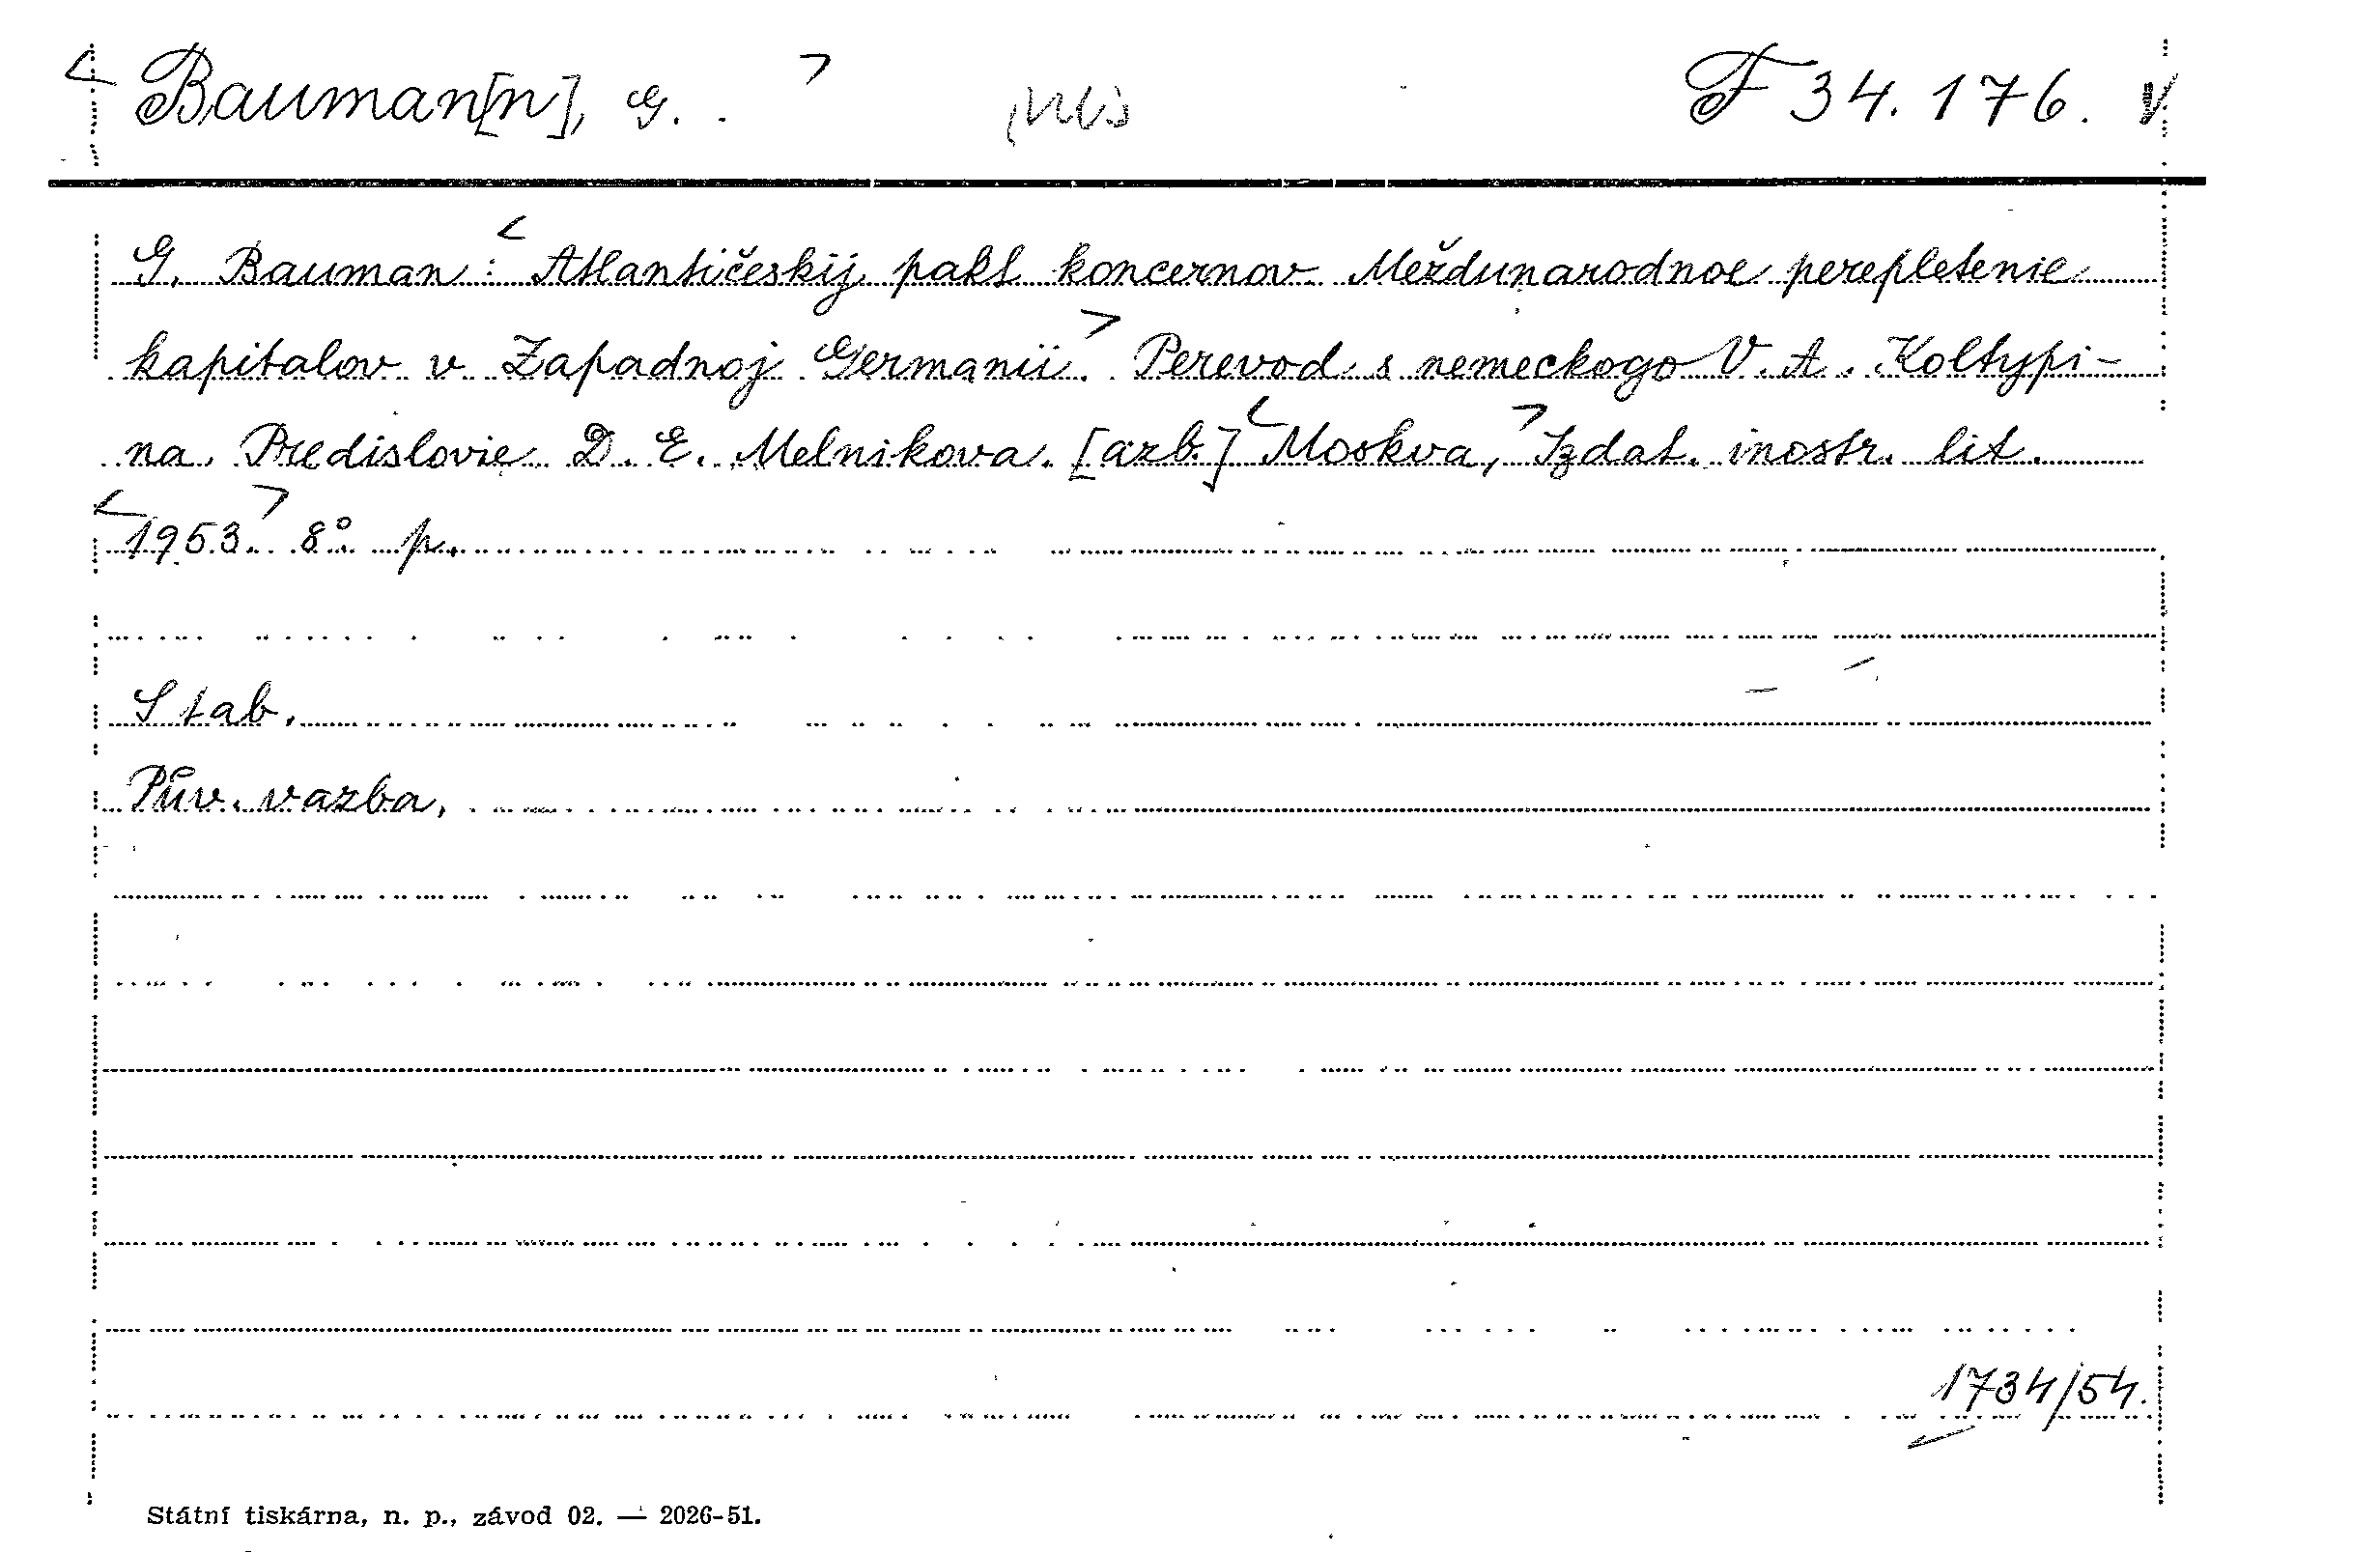 Bauman[n], G. F 34.176.
G. Bauman: Atlantičeskij pakt koncernov. Meždunarodnoe perepletenie
kapitalov v Zapadnoj Germanii. Perevod s nemeckogo V. A. Koltypi-
na. Predislovie D. E. Melnikova. [azb.] Moskva, Izdat. inostr. lit.
1953. 8°. p.
S tab.
Pův. vazba.
1734/54.
Státní tiskárna, n. p., závod 02. — 2026-51.